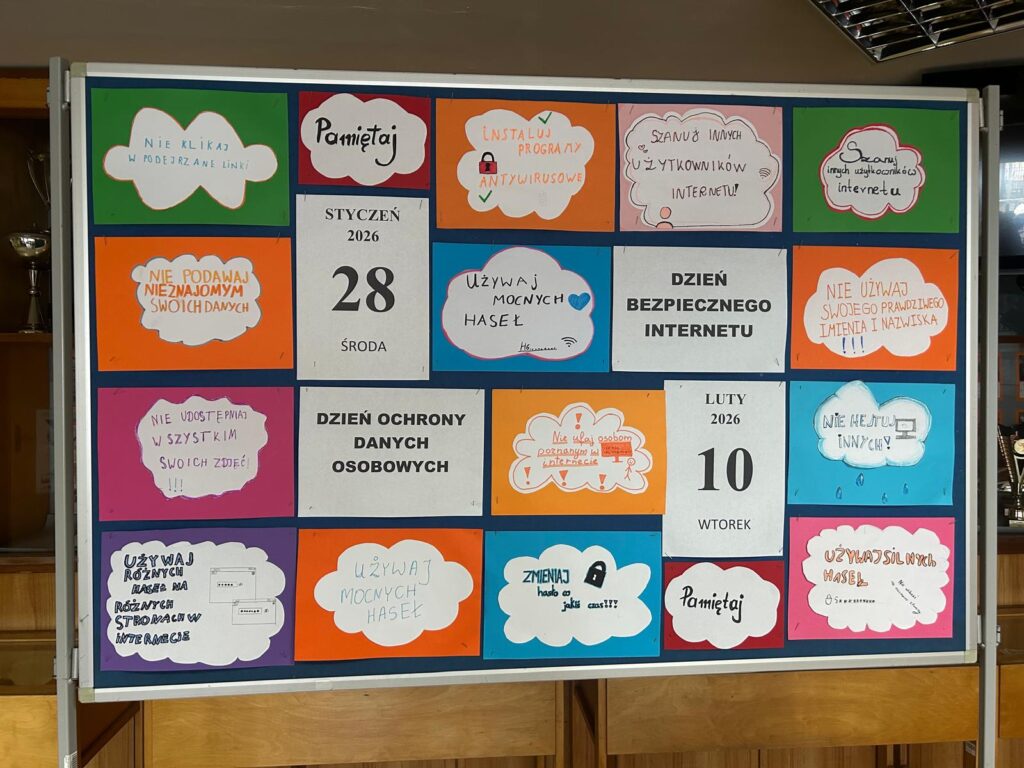 NIE KLIKAJ
W PODEJRZANE LINKI
Pamiętaj
INSTALUJ
PROGRAMY
ANTYWIRUSOWE
SZANUJ INNYCH
UŻYTKOWNIKÓW
INTERNETU!
Szanuj
innych użytkowników
internetu
NIE PODAWAJ
NIEZNAJOMYM
SWOICH DANYCH
STYCZEŃ
2026
28
ŚRODA
UŻYWAJ
MOCNYCH
HASEŁ
DZIEŃ
BEZPIECZNEGO
INTERNETU
NIE UŻYWAJ
SWOJEGO PRAWDZIWEGO
IMIENIA I NAZWISKA
!!!
NIE UDOSTĘPNIAJ
WSZYSTKIM
SWOICH ZDJĘĆ
!!!
DZIEŃ OCHRONY
DANYCH
OSOBOWYCH
Nie ufaj osobom
poznanym w
internecie
LUTY
2026
10
WTOREK
NIE HEJTUJ
INNYCH!
UŻYWAJ
RÓŻNYCH
HASEŁ NA
RÓŻNYCH
STRONACH W
INTERNECIE
UŻYWAJ
MOCNYCH
HASEŁ
ZMIENIAJ
hasło co
jakiś czas!!!
Pamiętaj
UŻYWAJ SILNYCH
HASEŁ